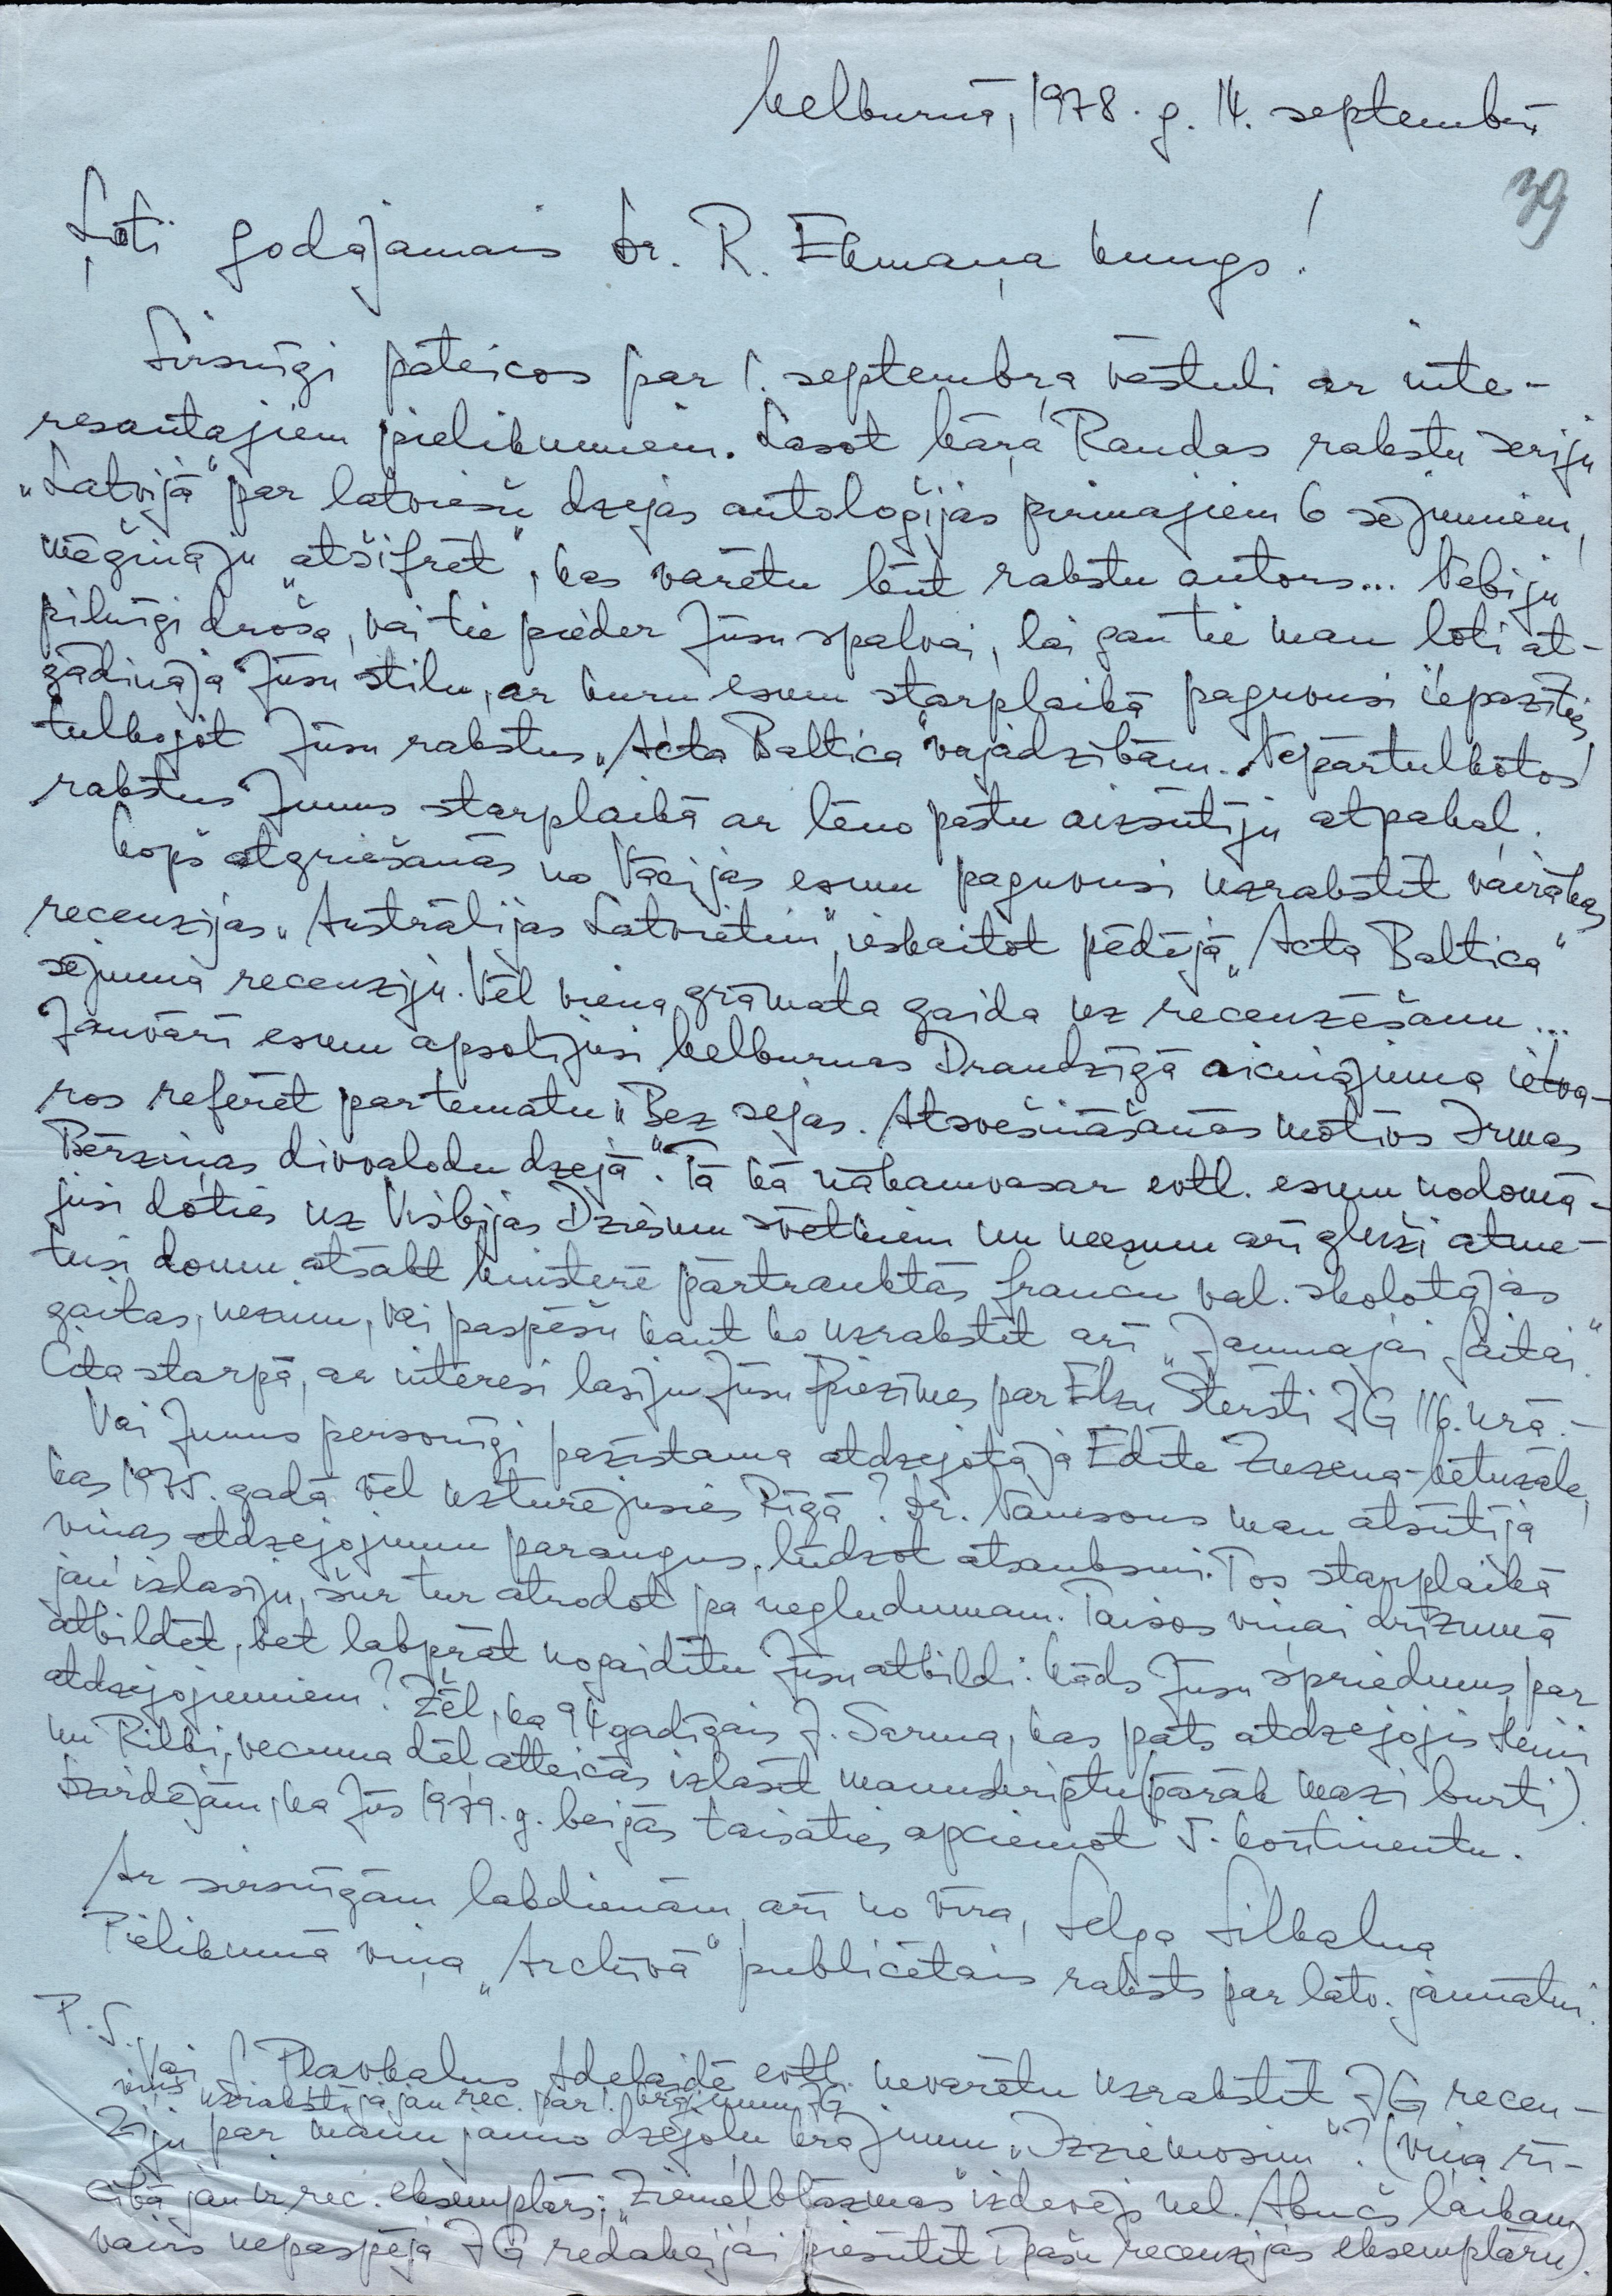 Melburnā, 1978. g. 14. septembrī
39
Ļoti godājamais Dr. R. Ekmaņa kungs!
Sirsnīgi pateicos par 1. septembra vēstuli ar inte-
resantajiem pielikumiem. Lasot Kāŗa Raudas rakstu seriju
„Latvijā" par latviešu dzejas antoloģijas pirmajiem 6 sējumiem,
mēģināju „atšifrēt", kas varētu būt rakstu autors... Nebiju
pilnīgi droša, vai tie pieder Jūsu spalvai, lai gan tie man ļoti at-
gādināja Jūsu stilu, ar kuru esmu starplaikā paguvusi iepazīties,
tulkojot Jūsu rakstus „Acta Baltica" vajadzībām. Nepārtulkotos
rakstus Jums starplaikā ar lēno pastu aizsūtīju atpakaļ.
Kopš atgriešanās no Vācijas esmu paguvusi uzrakstīt vairākas
recenzijas „Austrālijas Latvietim", ieskaitot pēdējā „Acta Baltica"
sējuma recenziju. Vēl viena grāmata gaida uz recenzēšanu...
Janvārī esmu apsolījusi Melburnas Draudzīgā aicinājuma ietva-
ros referēt par tematu „Bez sejas. Atsvešināšanās motīvs Irmas
Bērziņas divvalodu dzejā". Tā kā nākamvasar evtl. esmu nodomā-
jusi doties uz Visbijas Dziesmu svētkiem un neesmu arī gluži atme-
tusi domu atsākt Minsterē pārtrauktās franču val. skolotājas
gaitas, nezinu, vai paspēšu kaut ko uzrakstīt arī „Jaunajai Gaitai".
Cita starpā, ar interesi lasīju Jūsu Piezīmes par Elzu Stērsti JG 116. nrā.-
Vai Jums personīgi pazīstama atdzejotāja Edīte Zuzena-Metuzāle,
kas 1975. gadā vēl uzturējusies Rīgā? Dr. Namsons man atsūtīja
viņas atdzejojumu paraugus, lūdzot atsauksmi. Tos starplaikā
jau izlasīju, šur tur atrodot pa negludumam. Taisos viņai drīzumā
atbildēt, bet labprāt nogaidītu Jūsu atbildi: kāds Jūsu spriedums par
atdzejojumiem? Žēl, ka 94 gadīgais J. Sarma, kas pats atdzejojis Heini
un Rilki, vecuma dēļ atteicās izlasīt manuskriptu (pārāk mazi burti).
Dzirdējām, ka Jūs 1979. g. beigās taisāties apciemot 5. kontinentu.
Ar sirsnīgām labdienām, arī no vīra, Selga Silkalna
Pielikumā viņa „Archīvā" publicētais raksts par latv. jaunatni.
P.S.
Vai G. Pļavkalns Adelaidē evtl. nevarētu uzrakstīt JG recen-
viņš uzrakstīja jau rec. par 1. krājumu JG
ziju par manu jauno dzejoļu krājumu „Izziemosim"? (viņa rī-
cībā jau ir rec. eksemplārs; „Ziemeļblāzmas" izdevējs nel. Abučs laikam
vairs nepaspēja JG redakcijai piesūtīt īpašu recenzijas eksemplāru).